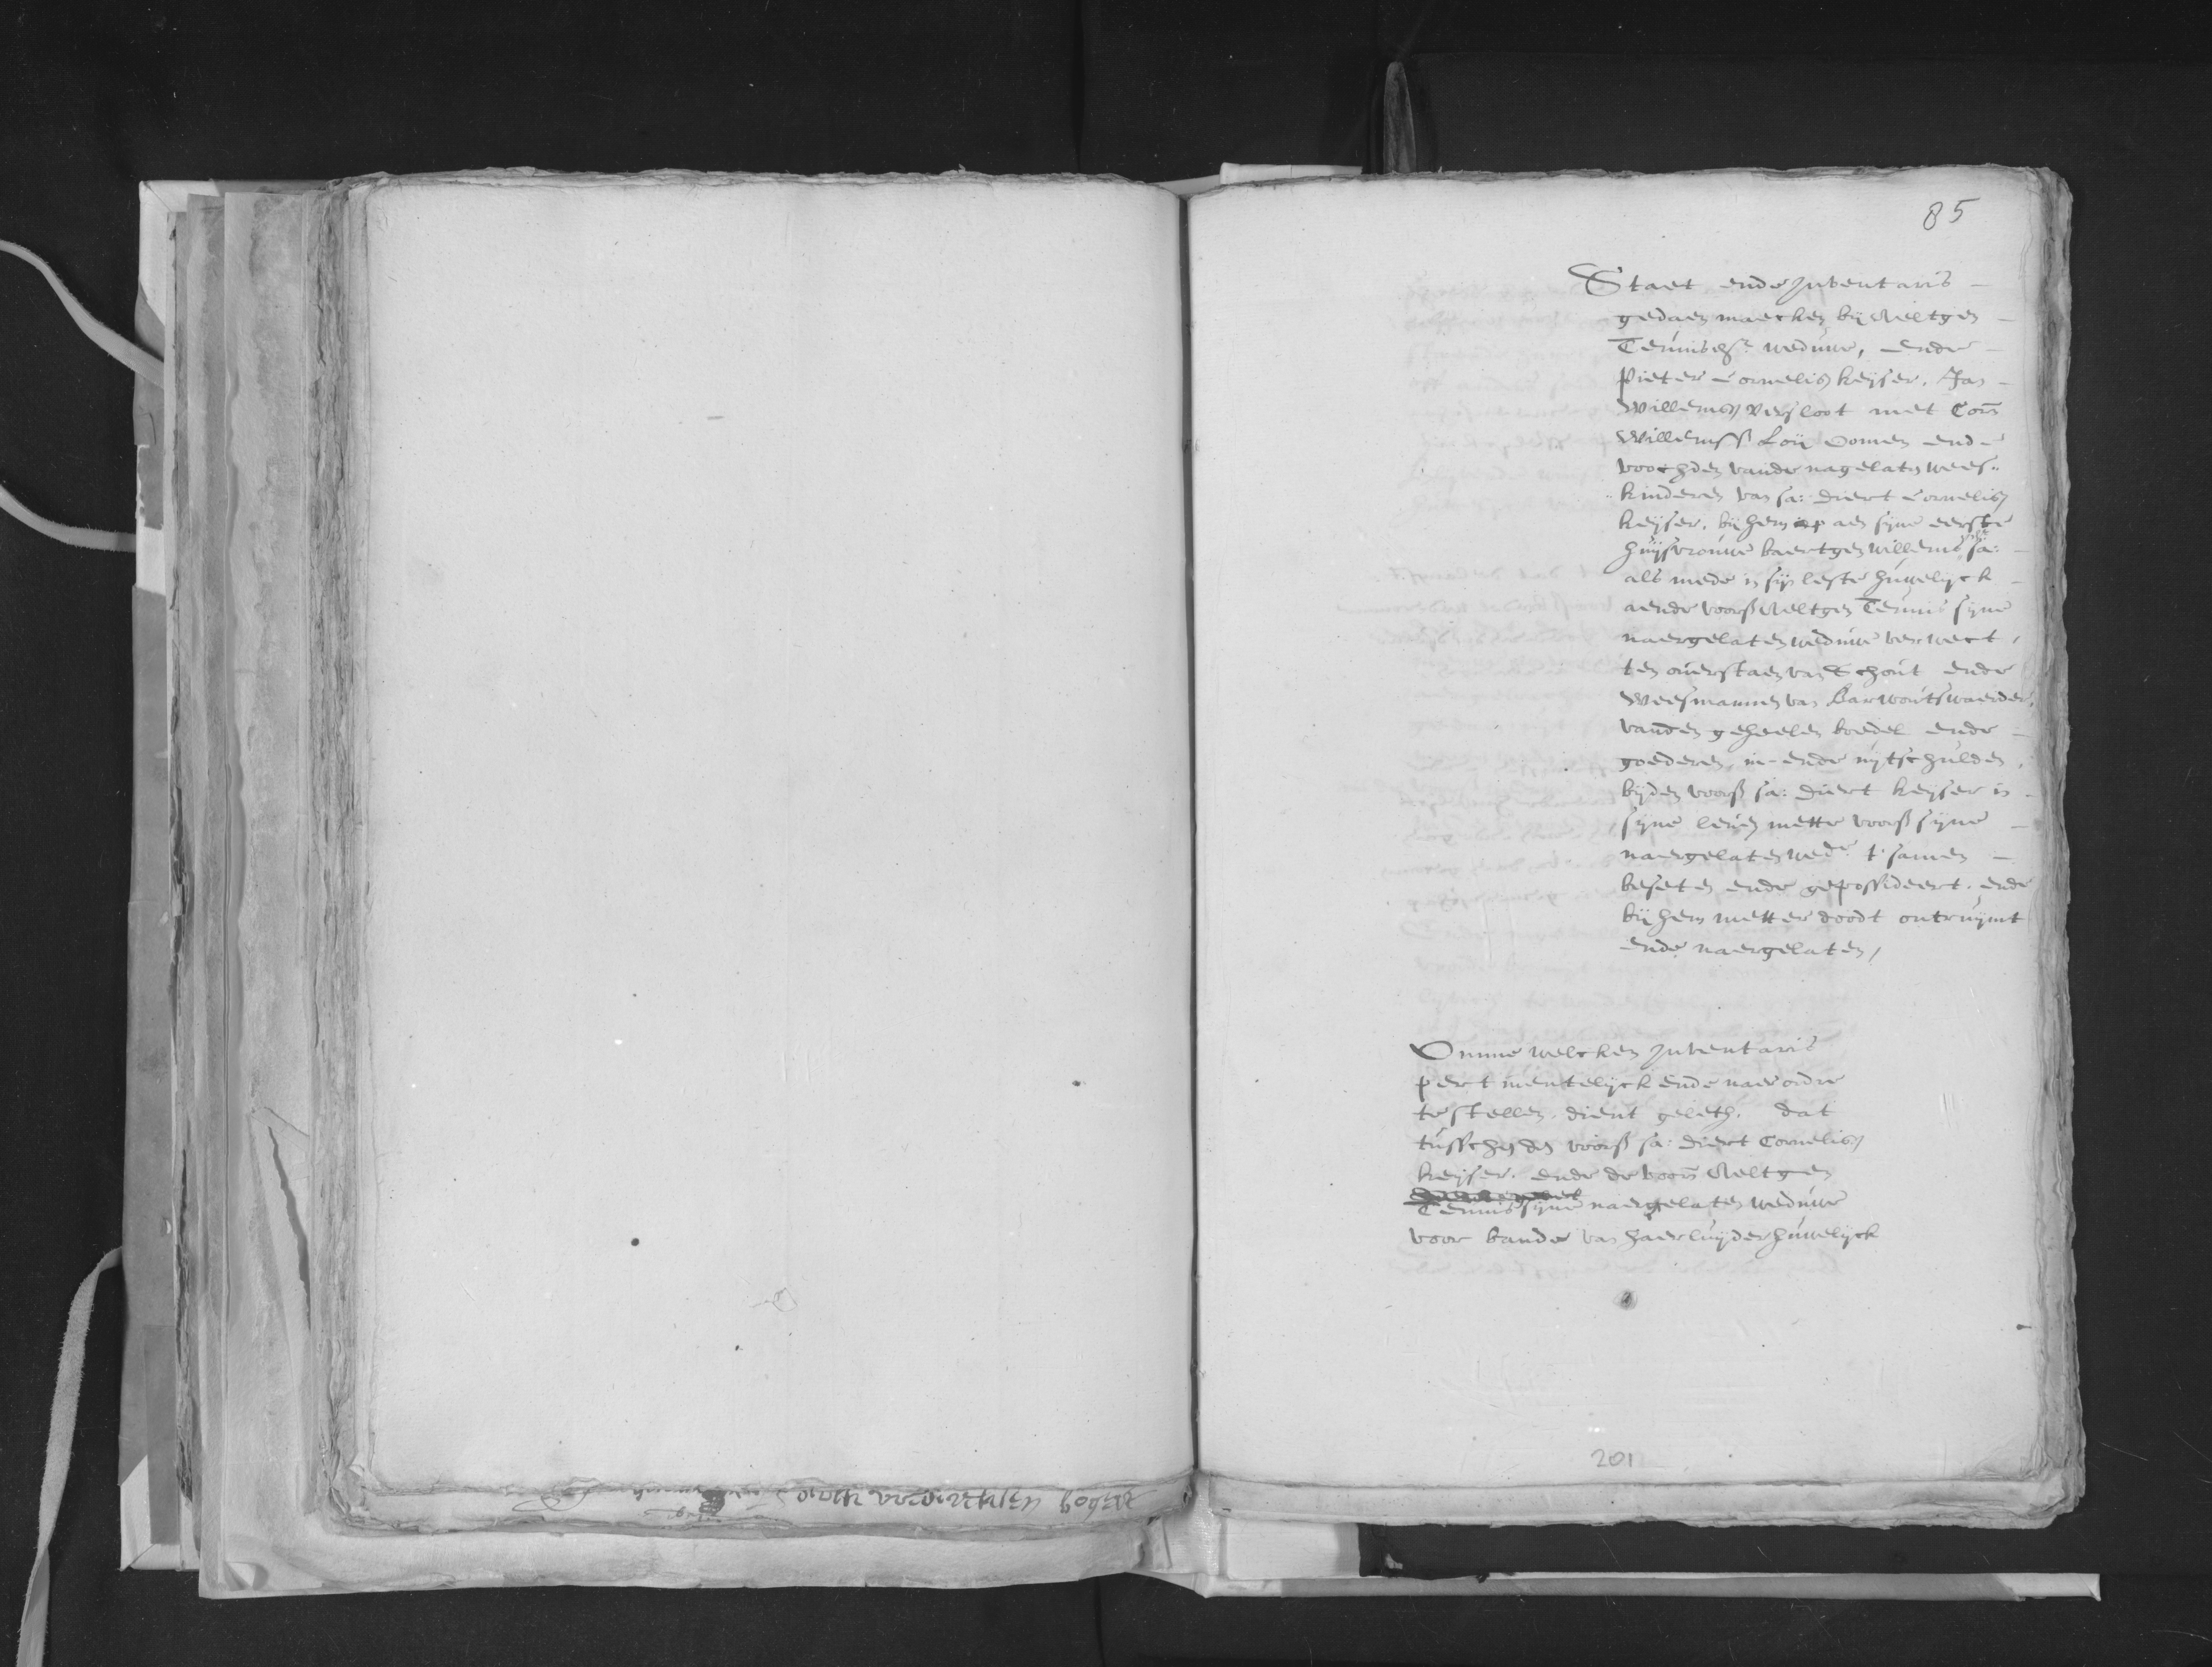 85
Staet ende Inventaris
gedaen maecken bij Neeltgen
Teunisdr weduwe, ende
Pieter Cornelisz keijser, Jan
Willemsz versloot met Corn
Willemss Loij oomen ende
voochden vande nagelaten wees
kinderen van sa: Diert Cornelisz
keijser, bij hem aen sijne eerste
huijsvrouwe baertgen willems sa:
als mede in sijn leste huwelijck
aende voorss Neeltgen Teunis sijne
naergelaten weduwe verweckt,
ten overstaen van Schout ende
Weesmannen van Barwoutswaerder,
vanden geheelen boedel ende
goederen, in- ende uijtschulden,
bijden voorss sa: Diert keijser in
sijne leven mette voorss sijne
naergelaten wede t'samen
beseten ende gepossideert. ende
bij hem metter doodt ontruijmt
ende naergelaten,
Omme welcken Inventaris
pertinentelijck ende naer ordre
te stellen, dient geleth, dat
tusschen den voorss sa: Diert Cornelisz
keijser, ende de voorn Neeltgen
Teunis sijne naergelaten weduwe
voor bande van haerluijder huwelijck
201